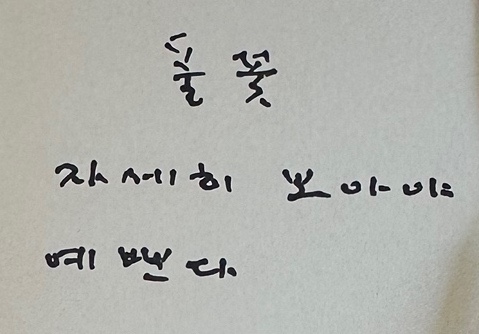 풀 꽃
자세히 보아야
예쁘다